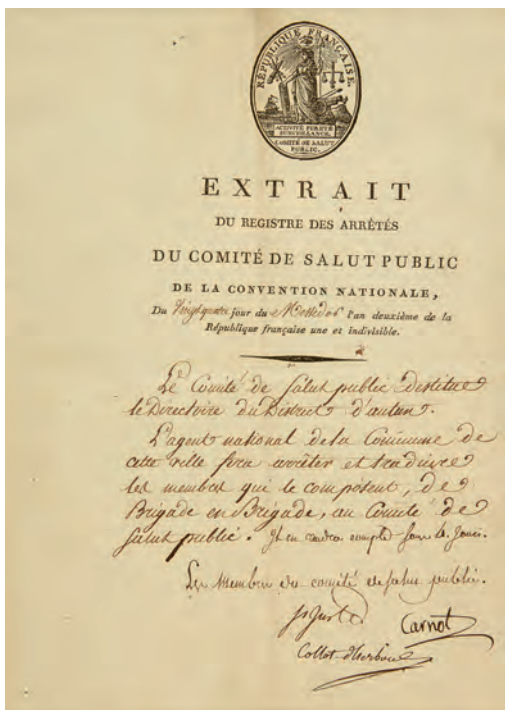 RÉPUBLIQUE FRANÇAISE.
ACTIVITÉ PURETÉ
SURVEILLANCE.
COMITÉ DE SALUT
PUBLIC.
EXTRAIT
DU REGISTRE DES ARRÊTÉS
DU COMITÉ DE SALUT PUBLIC
DE LA CONVENTION NATIONALE,
Du Vingt quatre jour du Messidor l'an deuxième de la
République française une et indivisible.
Le Comité de Salut public destitue
le Directoire du District d'autun.
L'agent national de la Commune de
cette ville fera arrêter et traduire
les membres qui le composent, de
Brigade en Brigade, au Comité de
Salut public. Il en rendra compte sous le jour.
Les Membres du comité de salut public.
St Just
Carnot
Collot d'herbois